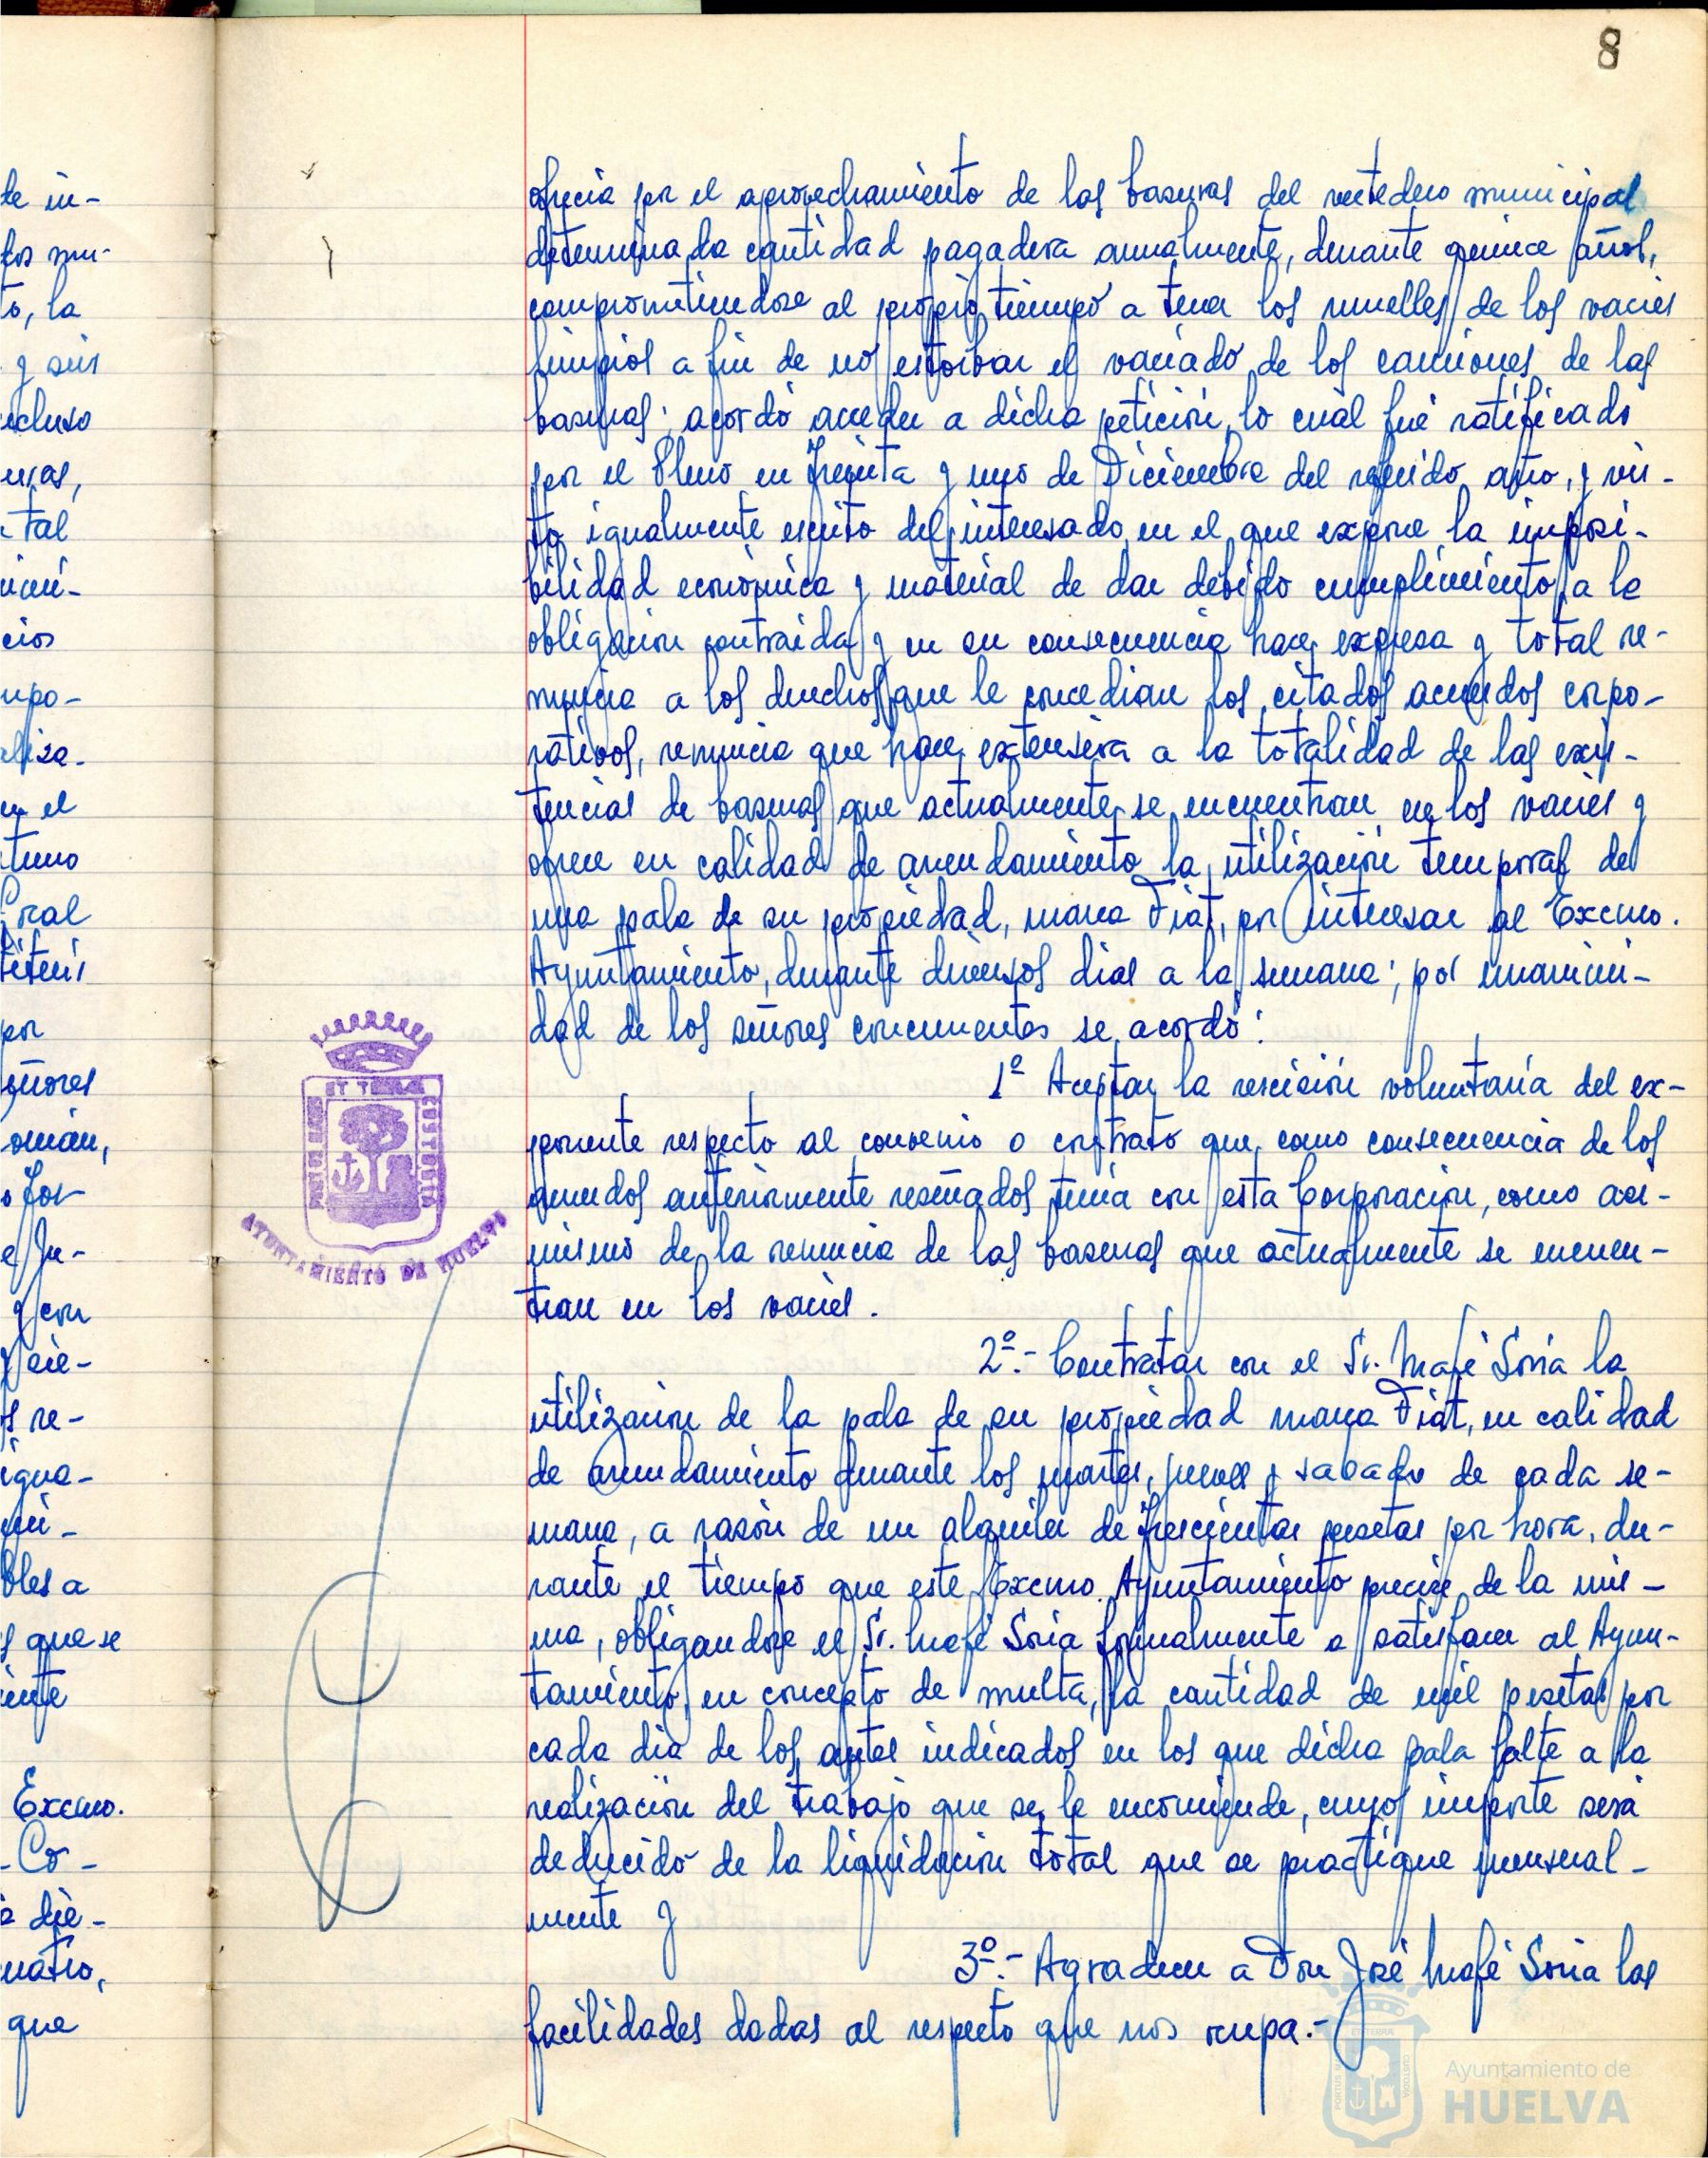 8
ofrecia por el aprovechamiento de las basuras del vertedero municipal
determinada cantidad pagadera anualmente, durante quince años,
comprometiendose al propio tiempo a tener los muelles de los vacies
limpios a fin de no estorbar el vaciado de los camiones de las
basuras; acordó acceder a dicha petición, lo cual fué ratificado
por el Pleno en treinta y uno de Diciembre del referido año, y vis-
to igualmente escrito del interesado en el que expone la imposi-
bilidad económica y material de dar debido cumplimiento a la
obligación contraida y en su consecuencia hace expresa y total re-
nuncia a los derechos que le concedian los citados acuerdos corpo-
rativos, renuncia que hace extensiva a la totalidad de las exis-
tencias de basuras que actualmente se encuentran en los vacies y
ofrece en calidad de arrendamiento la utilización temporal de
una pala de su propiedad, marca Fiat, por interesar al Excmo.
Ayuntamiento, durante diversos dias a la semana; por unanimi-
dad de los señores concurrentes se acordó:
1º Aceptar la rescisión voluntaria del ex-
ponente respecto al convenio o contrato que como consecuencia de los
acuerdos anteriormente reseñados tenia con esta Corporación, como asi-
mismo de la renuncia de las basuras que actualmente se encuen-
tran en los vacies.
2º.- Contratar con el Sr. Mafé Soria la
utilización de la pala de su propiedad marca Fiat, en calidad
de arrendamiento durante los martes, jueves y sabado de cada se-
mana, a razón de un alquiler de trescientas pesetas por hora, du-
rante el tiempo que este Excmo. Ayuntamiento precise de la mis-
ma, obligandose el Sr. Mafé Soria formalmente a satisfacer al Ayun-
tamiento, en concepto de multa, la cantidad de mil pesetas por
cada dia de los antes indicados en los que dicha pala falte a la
realización del trabajo que se le encomiende, cuyos importe será
deducido de la liquidación total que se practique mensual-
mente y
3º.- Agradecer a Don José Mafé Soria las
facilidades dadas al respecto que nos ocupa.-
AYUNTAMIENTO DE HUELVA
Ayuntamiento de
HUELVA
de in-
to, la
y sus
incluso
tal
cios
en el
por
señores
y con
re-
igua-
bles a
que se
Excmo.
Co-
que